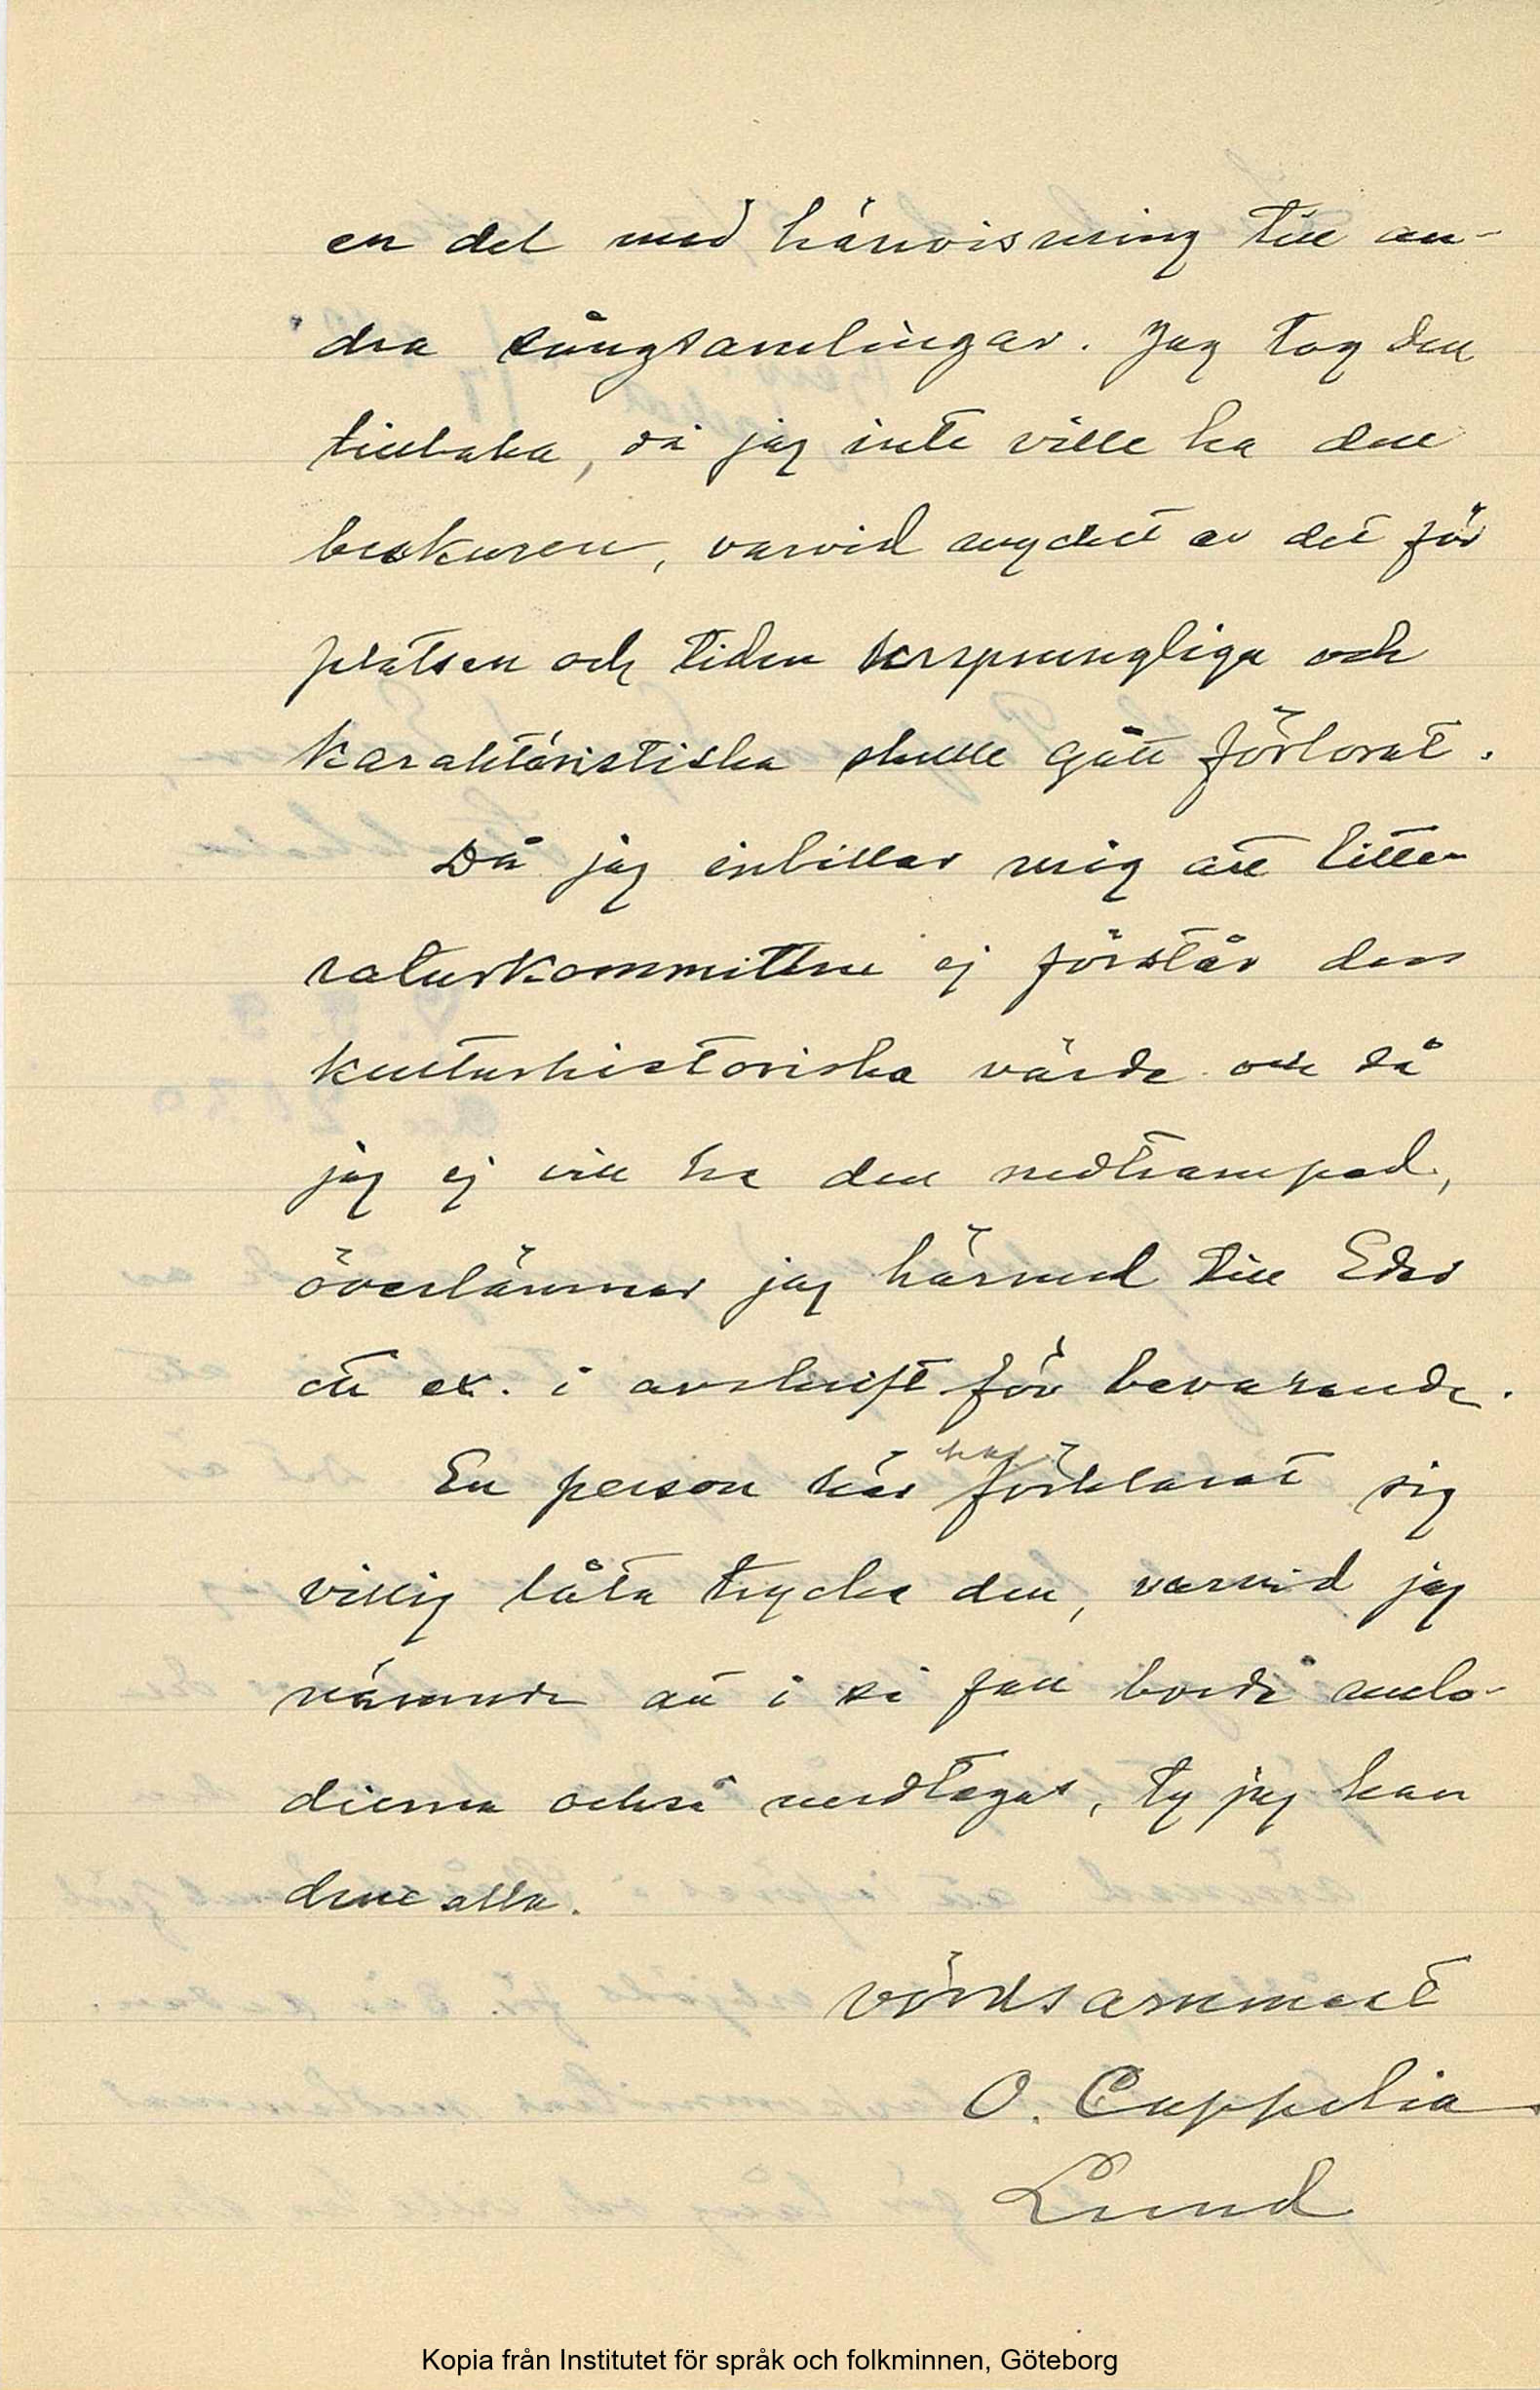 en del med hänvisning till an-
dra sångsamlingar. Jag tog den
tillbaka, då jag inte ville ha den
beskuren, varvid mycket av det för
platsen och tiden ursprungliga och
karaktäristiska skulle gått förlorat.
Då jag inbillar mig att litte-
raturkommittén ej förstår dess
kulturhistoriska värde och då
jag ej vill ha den nedtrampad,
överlämnar jag härmed till Eder
ett ex. i avskrift för bevarande.
En person här har förklarat sig
villig låta trycka den, varvid jag
nämnde att i så fall borde melo-
dierna också medtagas, ty jag kan
dem alla.
vördsammast
O. Cappelin
Lund
Kopia från Institutet för språk och folkminnen, Göteborg